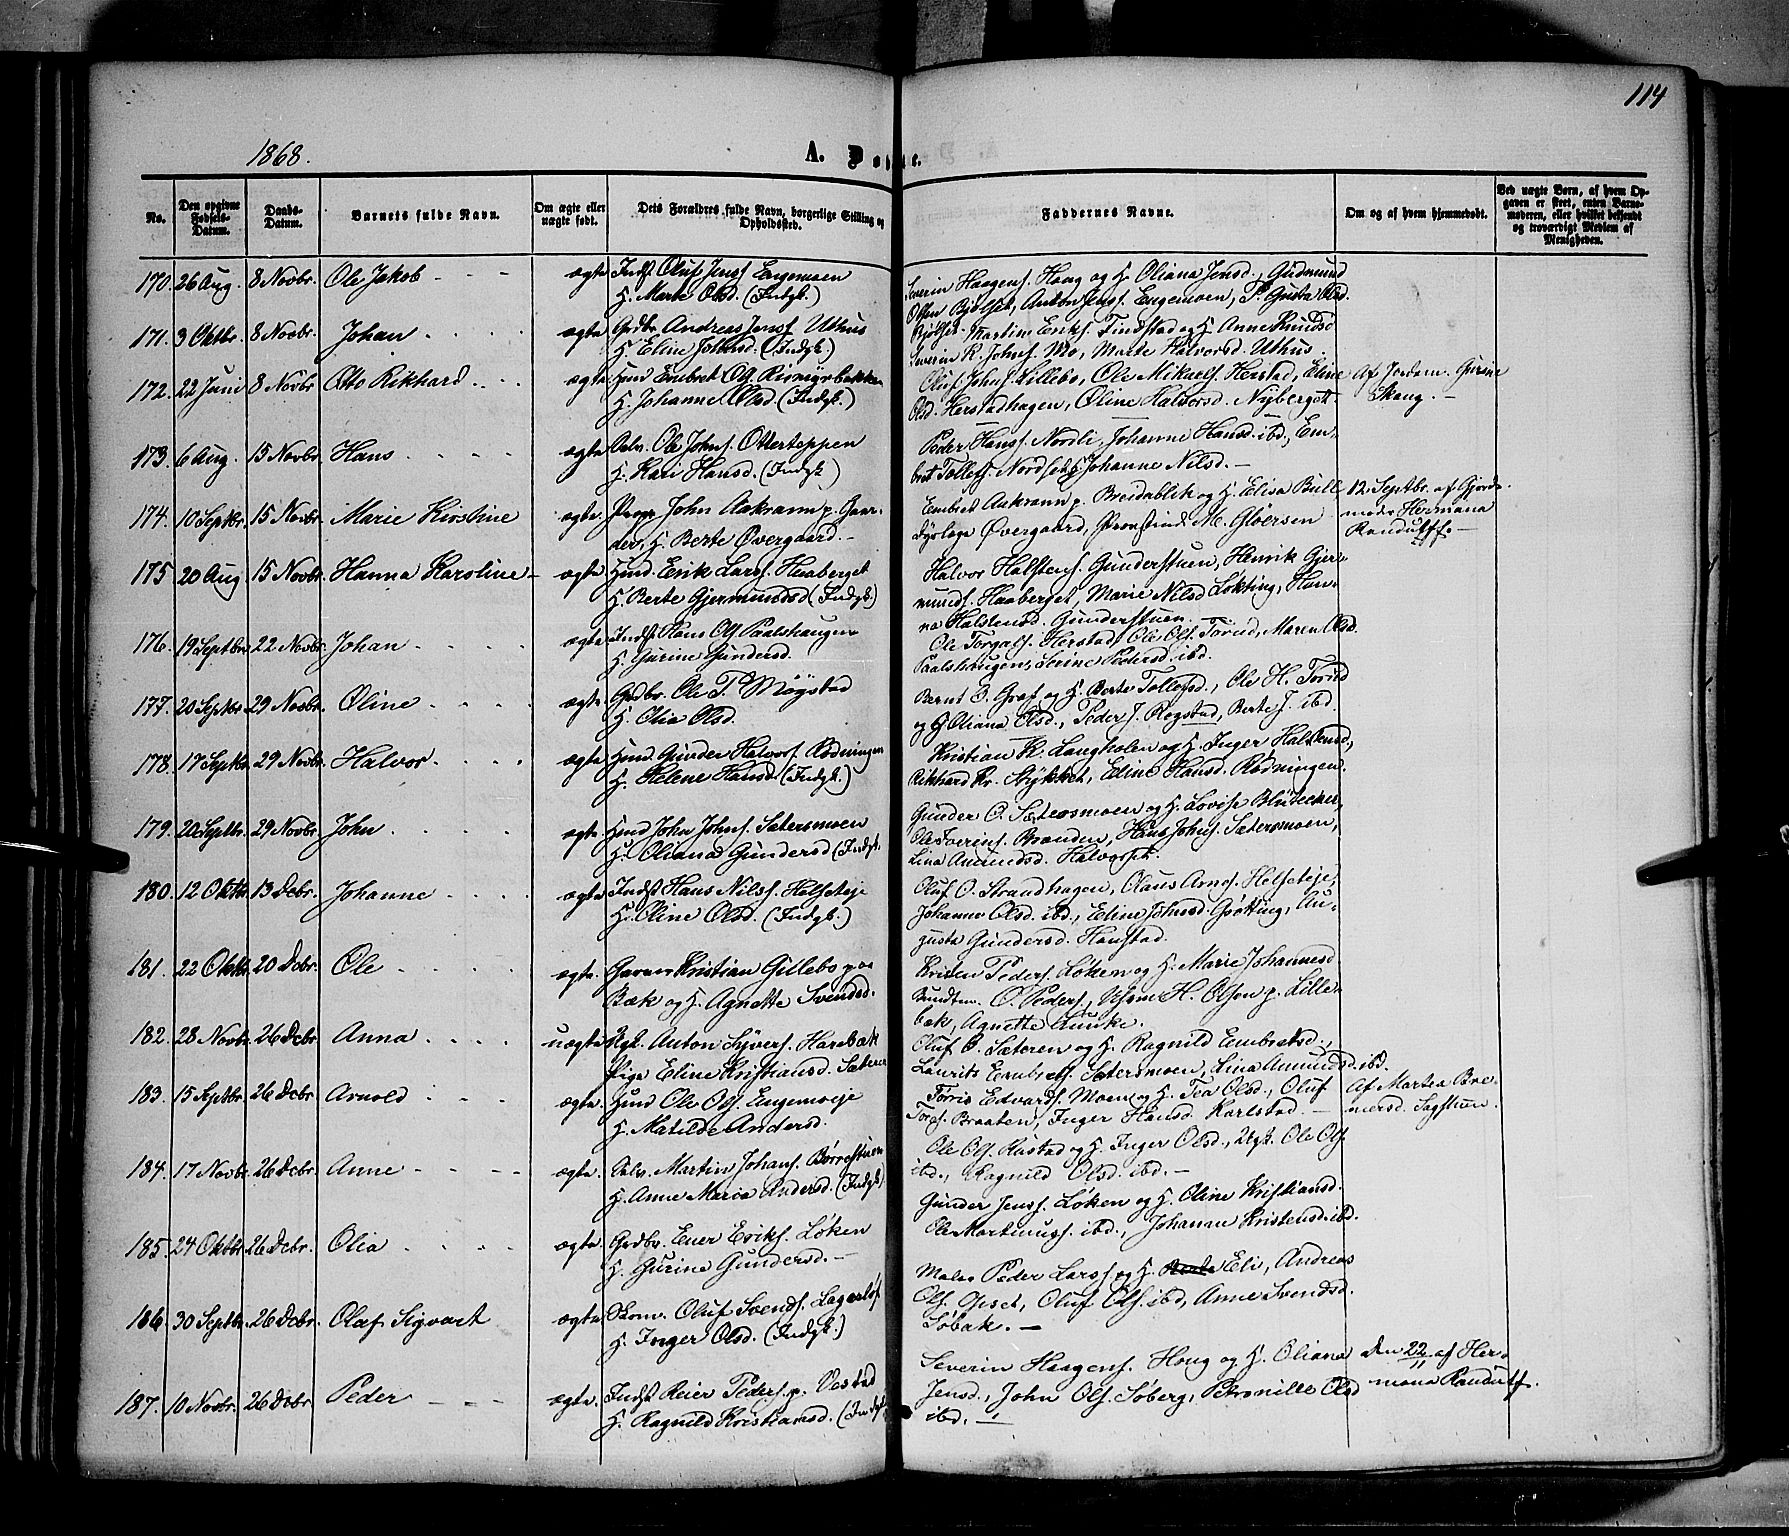 114
1868.
A. Døbte.
No.
Den opgivne Fødsels-Datum.
Daabs-Datum.
Barnets fulde Navn.
Om ægte eller uægte født.
Dets Forældres fulde Navn, borgerlige Stilling og Opholdssted.
Faddernes Navne.
Om og af hvem hjemmedøbt.
Ved uægte Børn, af hvem Opgaven er skeet, enten Barnemoderen, eller hvilket bekjendt og troværdigt Medlem af Menigheden.
170. 26 Aug. 8 Novbr. Ole Jakob ægte Indst. Oluf Jenss. Engemoen
H. Marte Olsd. (Indgk.)
Severin Haagens. Haag og H. Oliana Jensd., Gudmund
Olsen Bjølset, Anton Jens. Engemoen, P. Gusta Olsd.
171. 3 Oktbr. 8 Novbr. Johan ægte Grdbr. Andreas Jenss. Uthus
H. Eline Johnsd. (Indgk.)
Bjølset. Martin Eriks. Findstad og H. Anne Knudsd
Severin K. Johns. Mo, Marte Halvorsd. Uthus.
172. 22 Juni 8 Novbr. Otto Rikhard ægte Huusm. Embret Ols. Rismyrbakken
H. Johanne Olsd. (Indgk.)
Oluf Johns. Lillebo, Ole Mikaels. Herstad, Eline
Olsd. Herstadhagen, Oline Halvorsd. Nyberget.
Af Jordem. Gurine
Skaug.
173. 6 Aug. 15 Novbr. Hans ægte Selv. Ole Johns. Otterteppen
H. Kari Hansd. (Indgk)
Peder Hanss. Nordli, Johanne Hansd. ibd., Em-
bret Tollefs. Nordset, H. Johanne Nilsd.
174. 10 Septbr. 15 Novbr. Marie Kirstine ægte Prop. John Aakrann p. Gaar-
der, H. Berte Øvergaard.
Embret Aakrann p. Breidablik og H. Elisa Bull
Dyrlæge Øvergaard, Provstinde M. Gløersen
12 Septbr. af Gjorde-
moder Hermana
Randulff.
175 20 Aug 15 Novbr. Hanna Karoline ægte Huusm. Erik Larss. Haaberget
H. Berte Gjermundsd (Indgk.)
Halvor Halstens. Gunderstuen, Henrik Gjer-
munds. Haaberget, Marie Nilsd Løkting, Han-
na Halstensd. Gunderstuen.
176. 19 Septbr. 22 Novbr. Johan ægte Indst. Hans Ols. Paalshaugen
H. Gurine Gundersd.
Ole Torgals. Herstad, Ole Ols. Torud, Maren Olsd.
Paalshaugen, Serine Pedersd. ibd.
177. 20 Septbr. 29 Novbr. Oline ægte Grdbr. Ole T. Møystad
H. Olia Olsd.
Bernt O. Græf og H. Berte Tollefsd., Ole H. Torud
og H. Oliana Olsd., Peder J. Rogstad, Berte J. ibd.
178. 17 Septbr. 29 Novbr. Halvor ægte Huusm. Gunder Halvors. Rødningen
H. Helene Hansd. (Indgk.)
Kristian K. Langholen og H. Inger Halstensd,
Rikhard Kr. Stykket, Eline Hansd. Rødningen.
179. 20 Septbr. 29 Novbr. John ægte Huusm. John Johns. Sætersmoen
H. Oliana Gundersd (Indgk.
Gunder O. Sætersmoen og H. Lovise
Ole Iverins. Braaden, Hans Johns. Sætersmoen,
Lina Amundsd. Halvorsp.
180. 12 Oktbr. 13 Debr. Johanne ægte Indst Hans Nilss. Halseteje
H. Oline Olsd. (Indgk.)
Oluf O. Strandhagen, Olaus Arnes. Helseteje,
Johanne Olsd. ibd., Eline Johnsd. Grøtting, Au-
gusta Gundersd. Haustad.
181. 22 Oktbr. 20 Debr. Ole ægte. Garver Kristian Gillebo paa
Bæk og H. Agnette Svendsd.
Kristen Peders. Løken og H. Marie Johannesd
Bundtm. O. Peders, H. Olsen p. Lille-
bæk, Agnette Lunke.
182. 28 Novbr. 26 Debr Anna uægte Ugk. Anton Syvers. Harebæk
Pige Eline Kristiansd. Sæteren
Oluf O. Sæteren og H. Ragnild Embretsd.,
Laurits Embrets. Sætersmoen, Lina Amundsd. ibd.
183. 15 Septbr. 26 Debr. Arnold ægte. Huusm. Ole Ols. Engemoeje
H. Matilde Andersd.
Torris Edvards. Moen og H. Tea Olsd., Oluf
Torgs. Braaten, Inger Hansd. Karlstad.
Af Martea Bre-
mersd. Sagstuen.
184. 17 Novbr. 26 Debr. Anne ægte. Selv. Martin Johans. Børrestuen
H. Anne Maria Andersd. (Indgk)
Ole Ols. Rustad og H. Inger Olsd., Ugk. Ole Ols.
ibd., Ragnild Olsd. ibd.
185. 24 Oktbr. 26 Debr. Olia ægte. Grdbr. Ener Eriks. Løken
H. Gurine Gundersd.
Gunder Jenss. Løken og H. Oline Kristiansd.
Ole Martinuss. ibd., Johanne Kristensd. ibd.
186. 30 Septbr. 26 Debr. Olaf Sigvart ægte. Skom. Oluf Svends. Lagerløf
H. Inger Olsd. (Indgk.)
Maler Peder Larss. og H. Eli, Andreas
Ols. Opset, Oluf Ols. ibd, Anne Svendsd.
Søbak.
187. 10 Novbr. 26 Debr. Peder ægte. Indst Reier Peders. p. Vestad
H. Ragnild Kristiansd. (Indgk
Severin Haagens. Haug og H. Oliana
Jensd., John Ols. Søberg, Petronille Olsd
ibd.
Den 22/11 af Her-
mana Randulff.